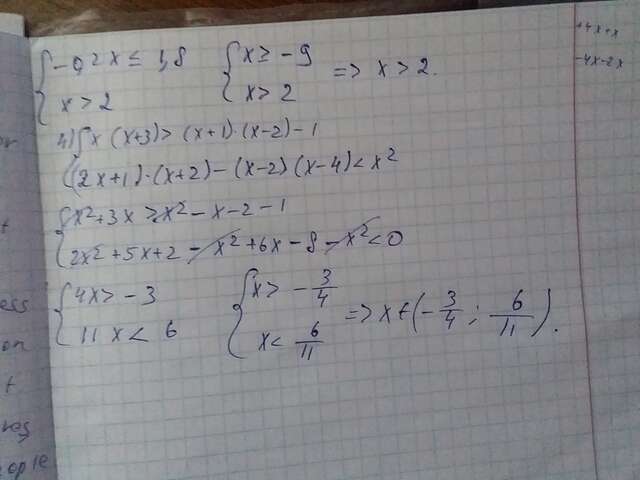 { -0,2x ≤ 1,8   { x ≥ -9
{ x > 2   { x > 2   => x > 2.
4) { x (x+3) > (x+1)·(x-2) - 1
{ (2x+1)·(x+2) - (x-2)(x-4) < x²
{ x² + 3x > x² - x - 2 - 1
{ 2x² + 5x + 2 - x² + 6x - 8 - x² < 0
{ 4x > -3   { x > -3/4
{ 11x < 6   { x < 6/11   => x ∈ (-3/4 ; 6/11).
-4x-2x